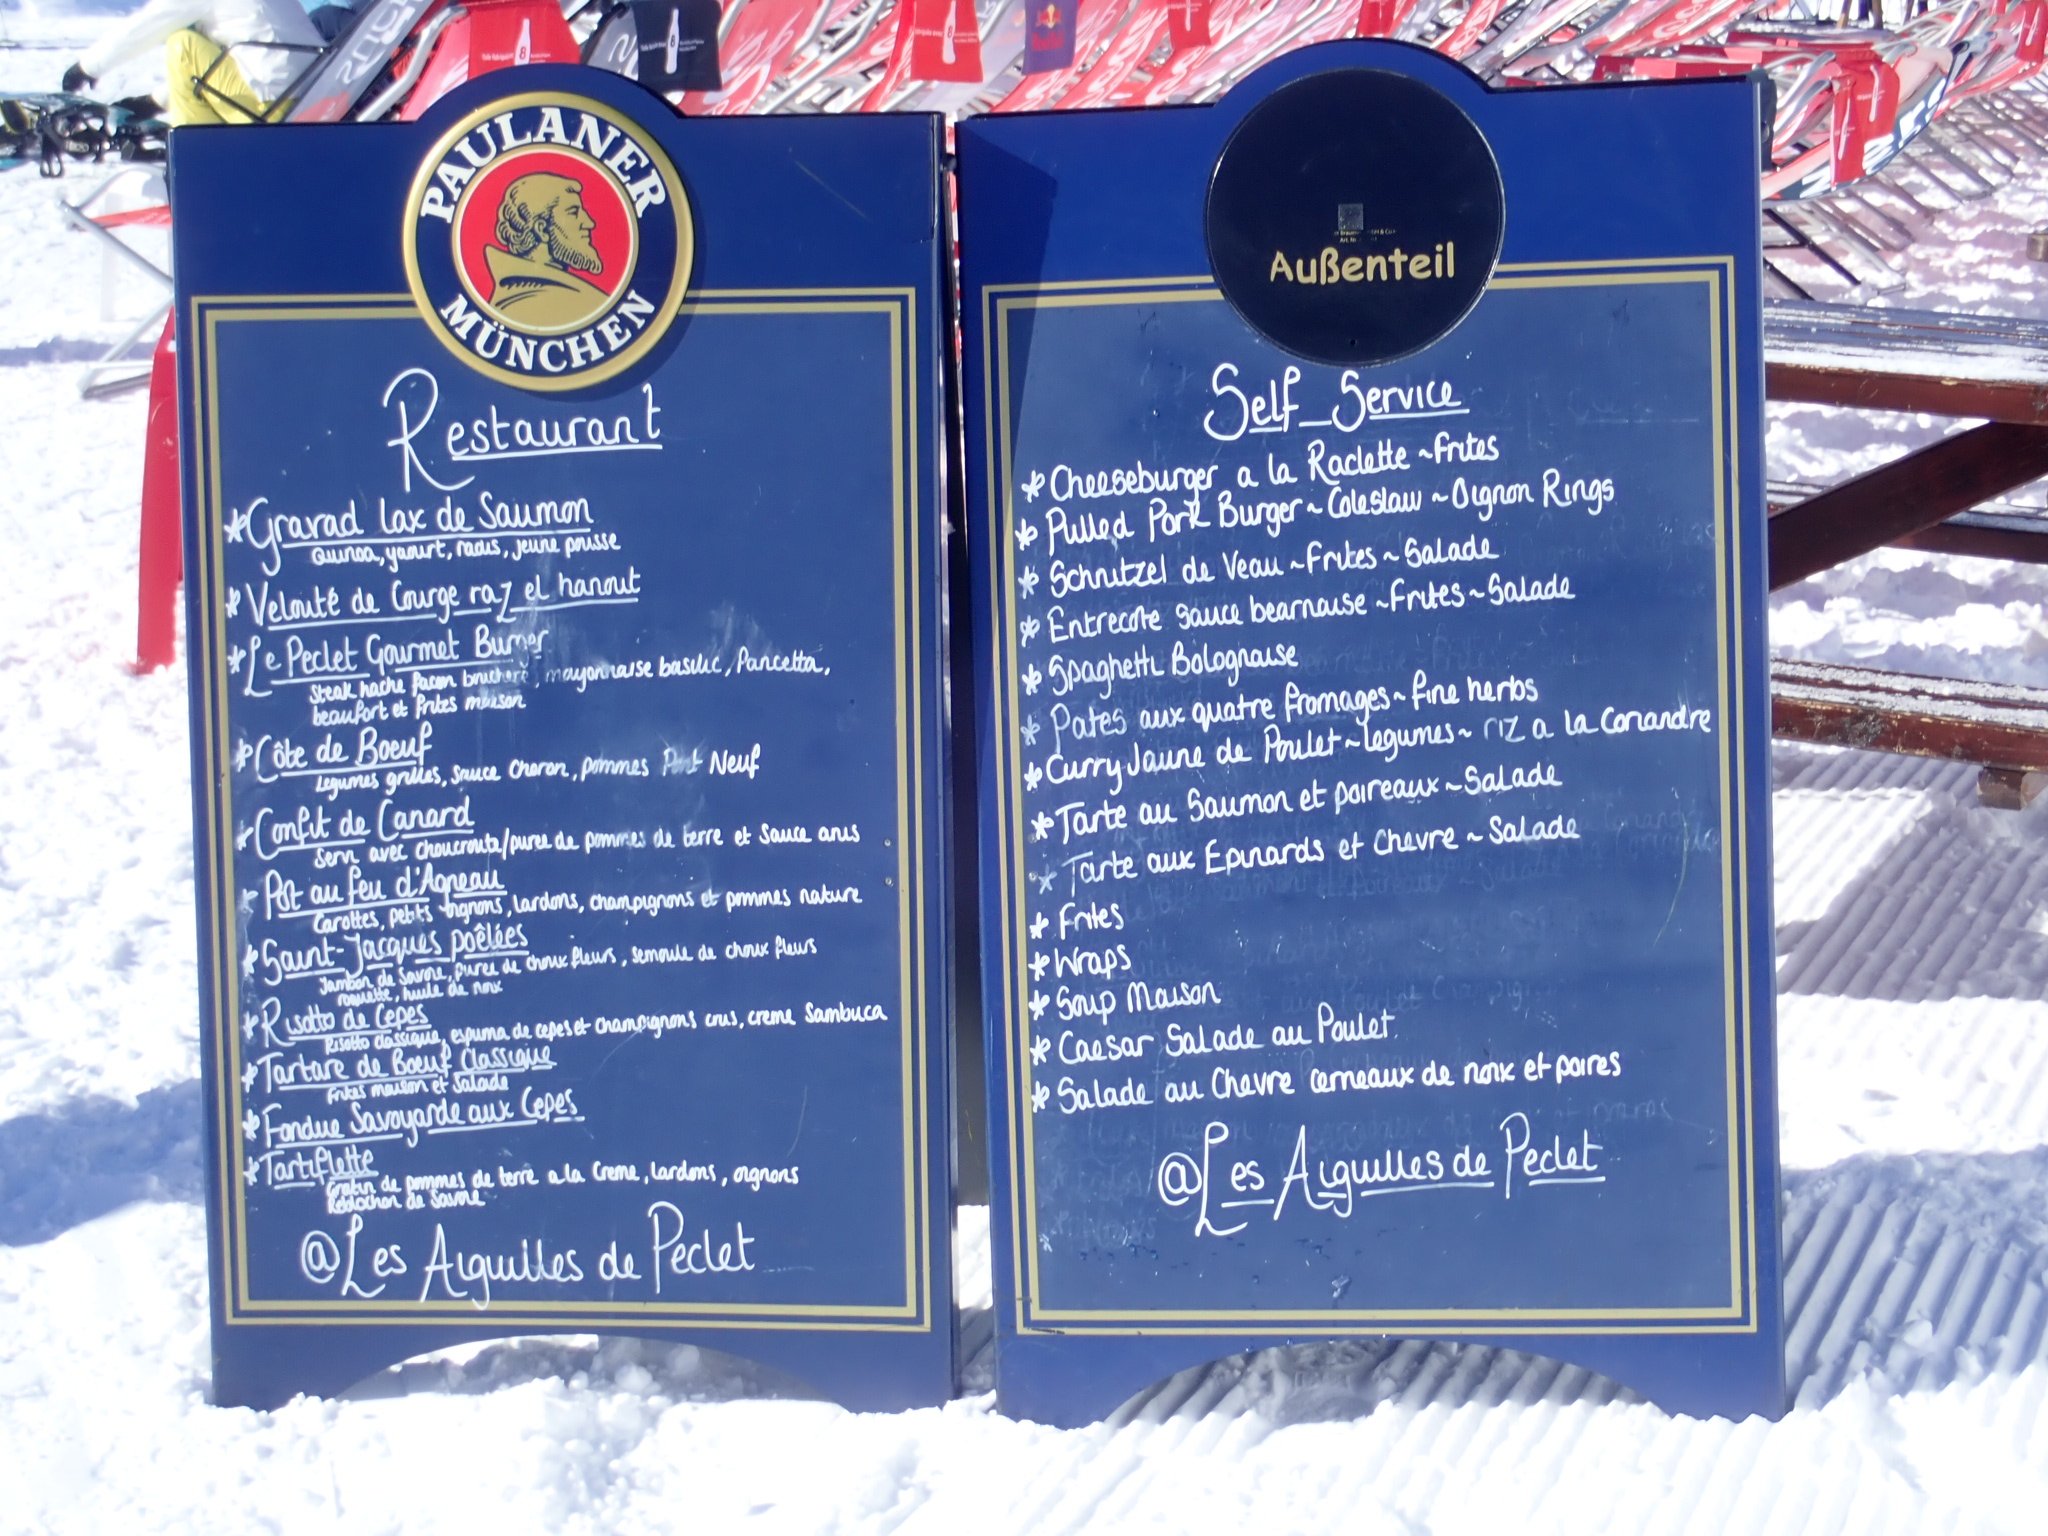 PAULANER
MÜNCHEN
Restaurant
*Gravad lax de Saumon
Quinoa, yaourt, radis, jeune pousse
*Velouté de Courge raz el hanout
*Le Peclet Gourmet Burger
Steak hache facon bouchere, mayonnaise basilic, Pancetta,
beaufort et frites maison
*Côte de Boeuf
Legumes grilles, sauce Choron, pommes Pont Neuf
*Confit de Canard
Servi avec choucroute/puree de pommes de terre et sauce anis
*Pot au feu d'Agneau
Carottes, petits oignons, lardons, champignons et pommes nature
*Saint-Jacques poêlées
Jambon de Savoie, puree de choux fleurs, semoule de choux fleurs
roquette, huile de noix
*Risotto de Cepes
Risotto classique, espuma de cepes et champignons crus, creme Sambuca
*Tartare de Boeuf Classique
Frites maison et Salade
*Fondue Savoyarde aux Cepes
*Tartiflette
Gratin de pommes de terre a la Creme, lardons, oignons
Reblochon de Savoie
@Les Aiguilles de Peclet
Außenteil
Self_Service
*Cheeseburger a la Raclette ~ Frites
*Pulled Pork Burger ~ Coleslaw ~ Oignon Rings
*Schnitzel de Veau ~ Frites ~ Salade
*Entrecote sauce bearnaise ~ Frites ~ Salade
*Spaghetti Bolognaise
*Pates aux quatre fromages ~ fine herbs
*Curry Jaune de Poulet ~ legumes ~ riz a la Coriandre
*Tarte au Saumon et poireaux ~ Salade
*Tarte aux Epinards et Chevre ~ Salade
*Frites
*Wraps
*Soup Maison
*Caesar Salade au Poulet
*Salade au Chevre cerneaux de noix et poires
@Les Aiguilles de Peclet